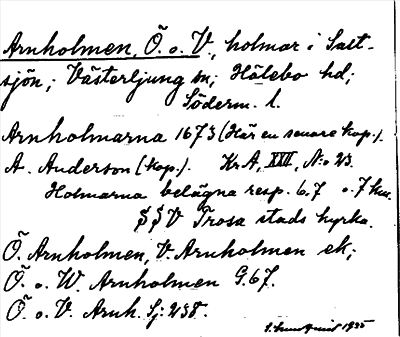 Arnholmen, Ö. o. V., holmar i Salt-
sjön; Västerljung sn; Hölebo hd;
Söderm. l.
Arnholmarna 1673 (Här en senare kop.).
A. Anderson (kop.). Kr.A, XXII, N:o 23.
Holmarna belägna resp. 6.7 o. 7 km.
S S V Trosa stads kyrka.
Ö. Arnholmen, V. Arnholmen ek;
Ö. o. W. Arnholmen G. 67.
Ö. o. V. Arnh. Sj: 238.
1935